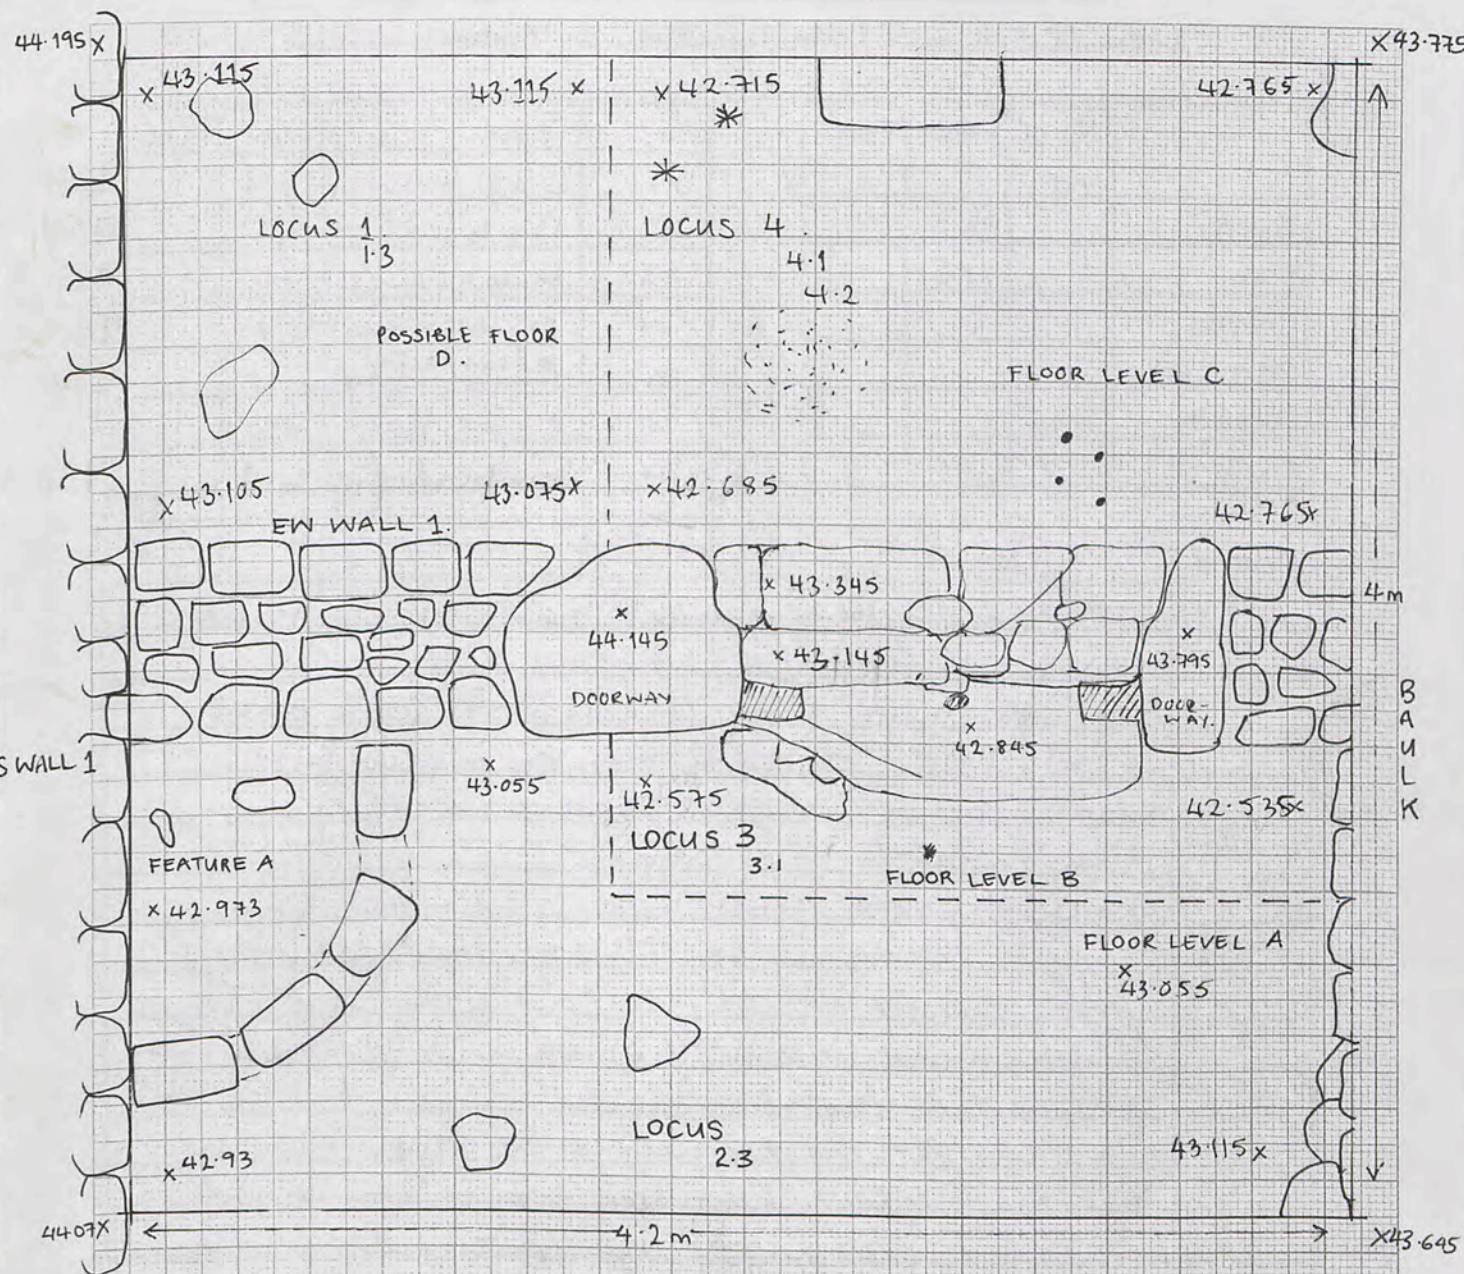 44.195 x
x 43.775
x 43.115
43.115 x
x 42.715
42.765 x
LOCUS 1.
1.3
LOCUS 4.
4.1
4.2
POSSIBLE FLOOR
D.
FLOOR LEVEL C
x 43.105
43.075x
x 42.685
42.765x
EW WALL 1.
x 43.345
4m
x
44.145
x 43.145
x
43.795
DOORWAY
DOOR-
WAY.
BAULK
x
42.845
S WALL 1
x
43.055
x
42.575
42.535x
LOCUS 3
3.1
FEATURE A
FLOOR LEVEL B
x 42.973
FLOOR LEVEL A
x
43.055
LOCUS
2.3
x 42.93
43.115 x
4407x
4.2m
x43.695